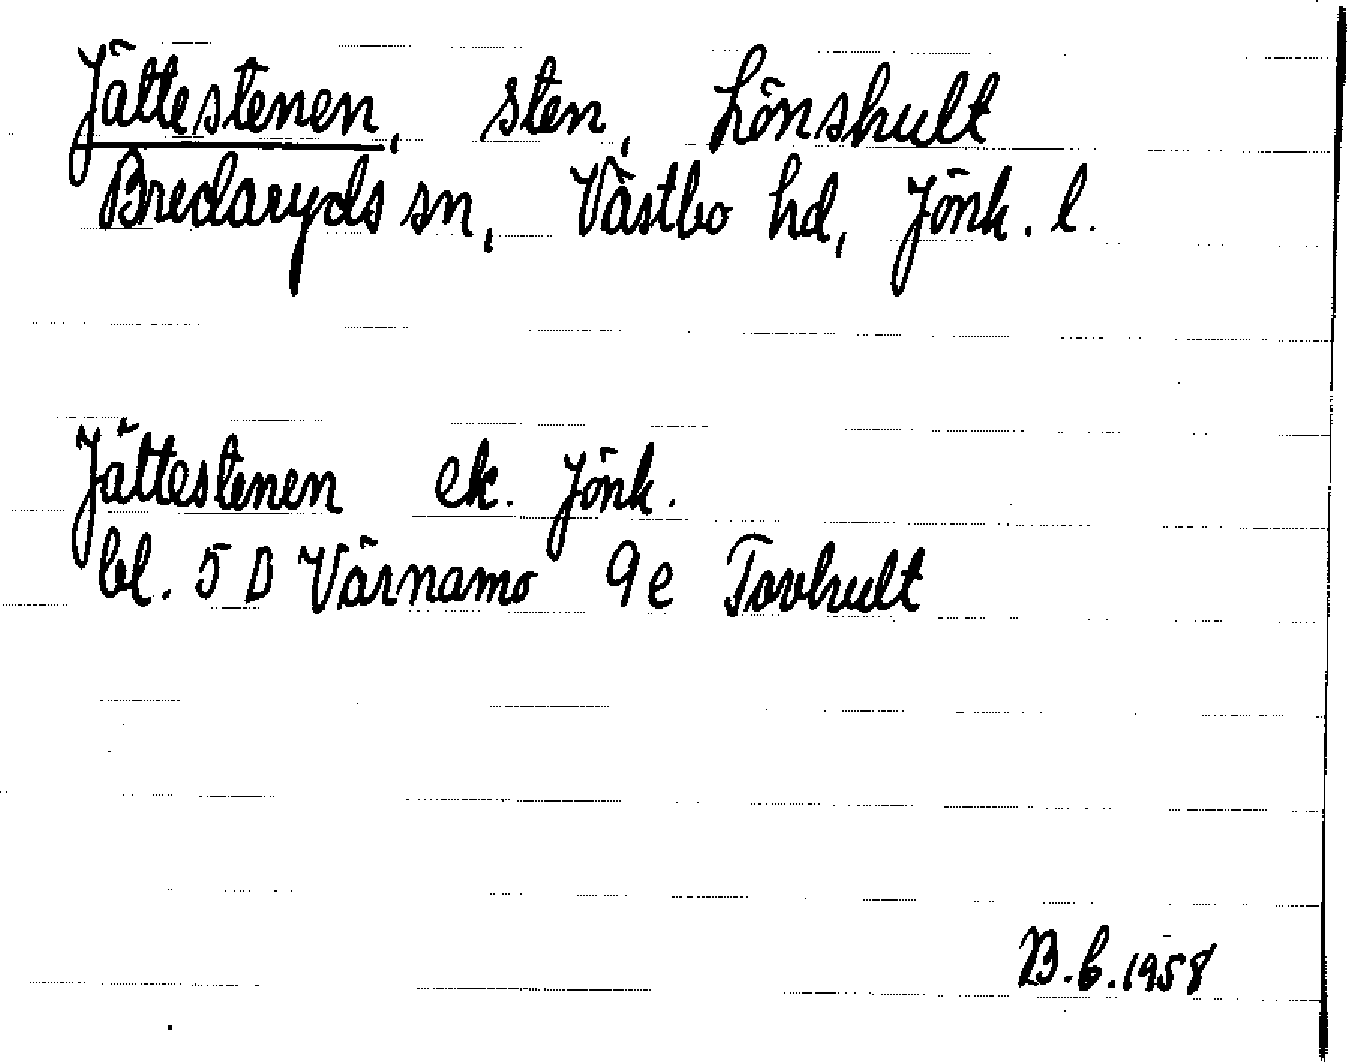 Jättestenen, sten, Lönshult
Bredaryds sn, Västbo hd, Jönk. l.
Jättestenen ek. Jönk.
bl. 5 D Värnamo 9e Torhult
B.6.1958